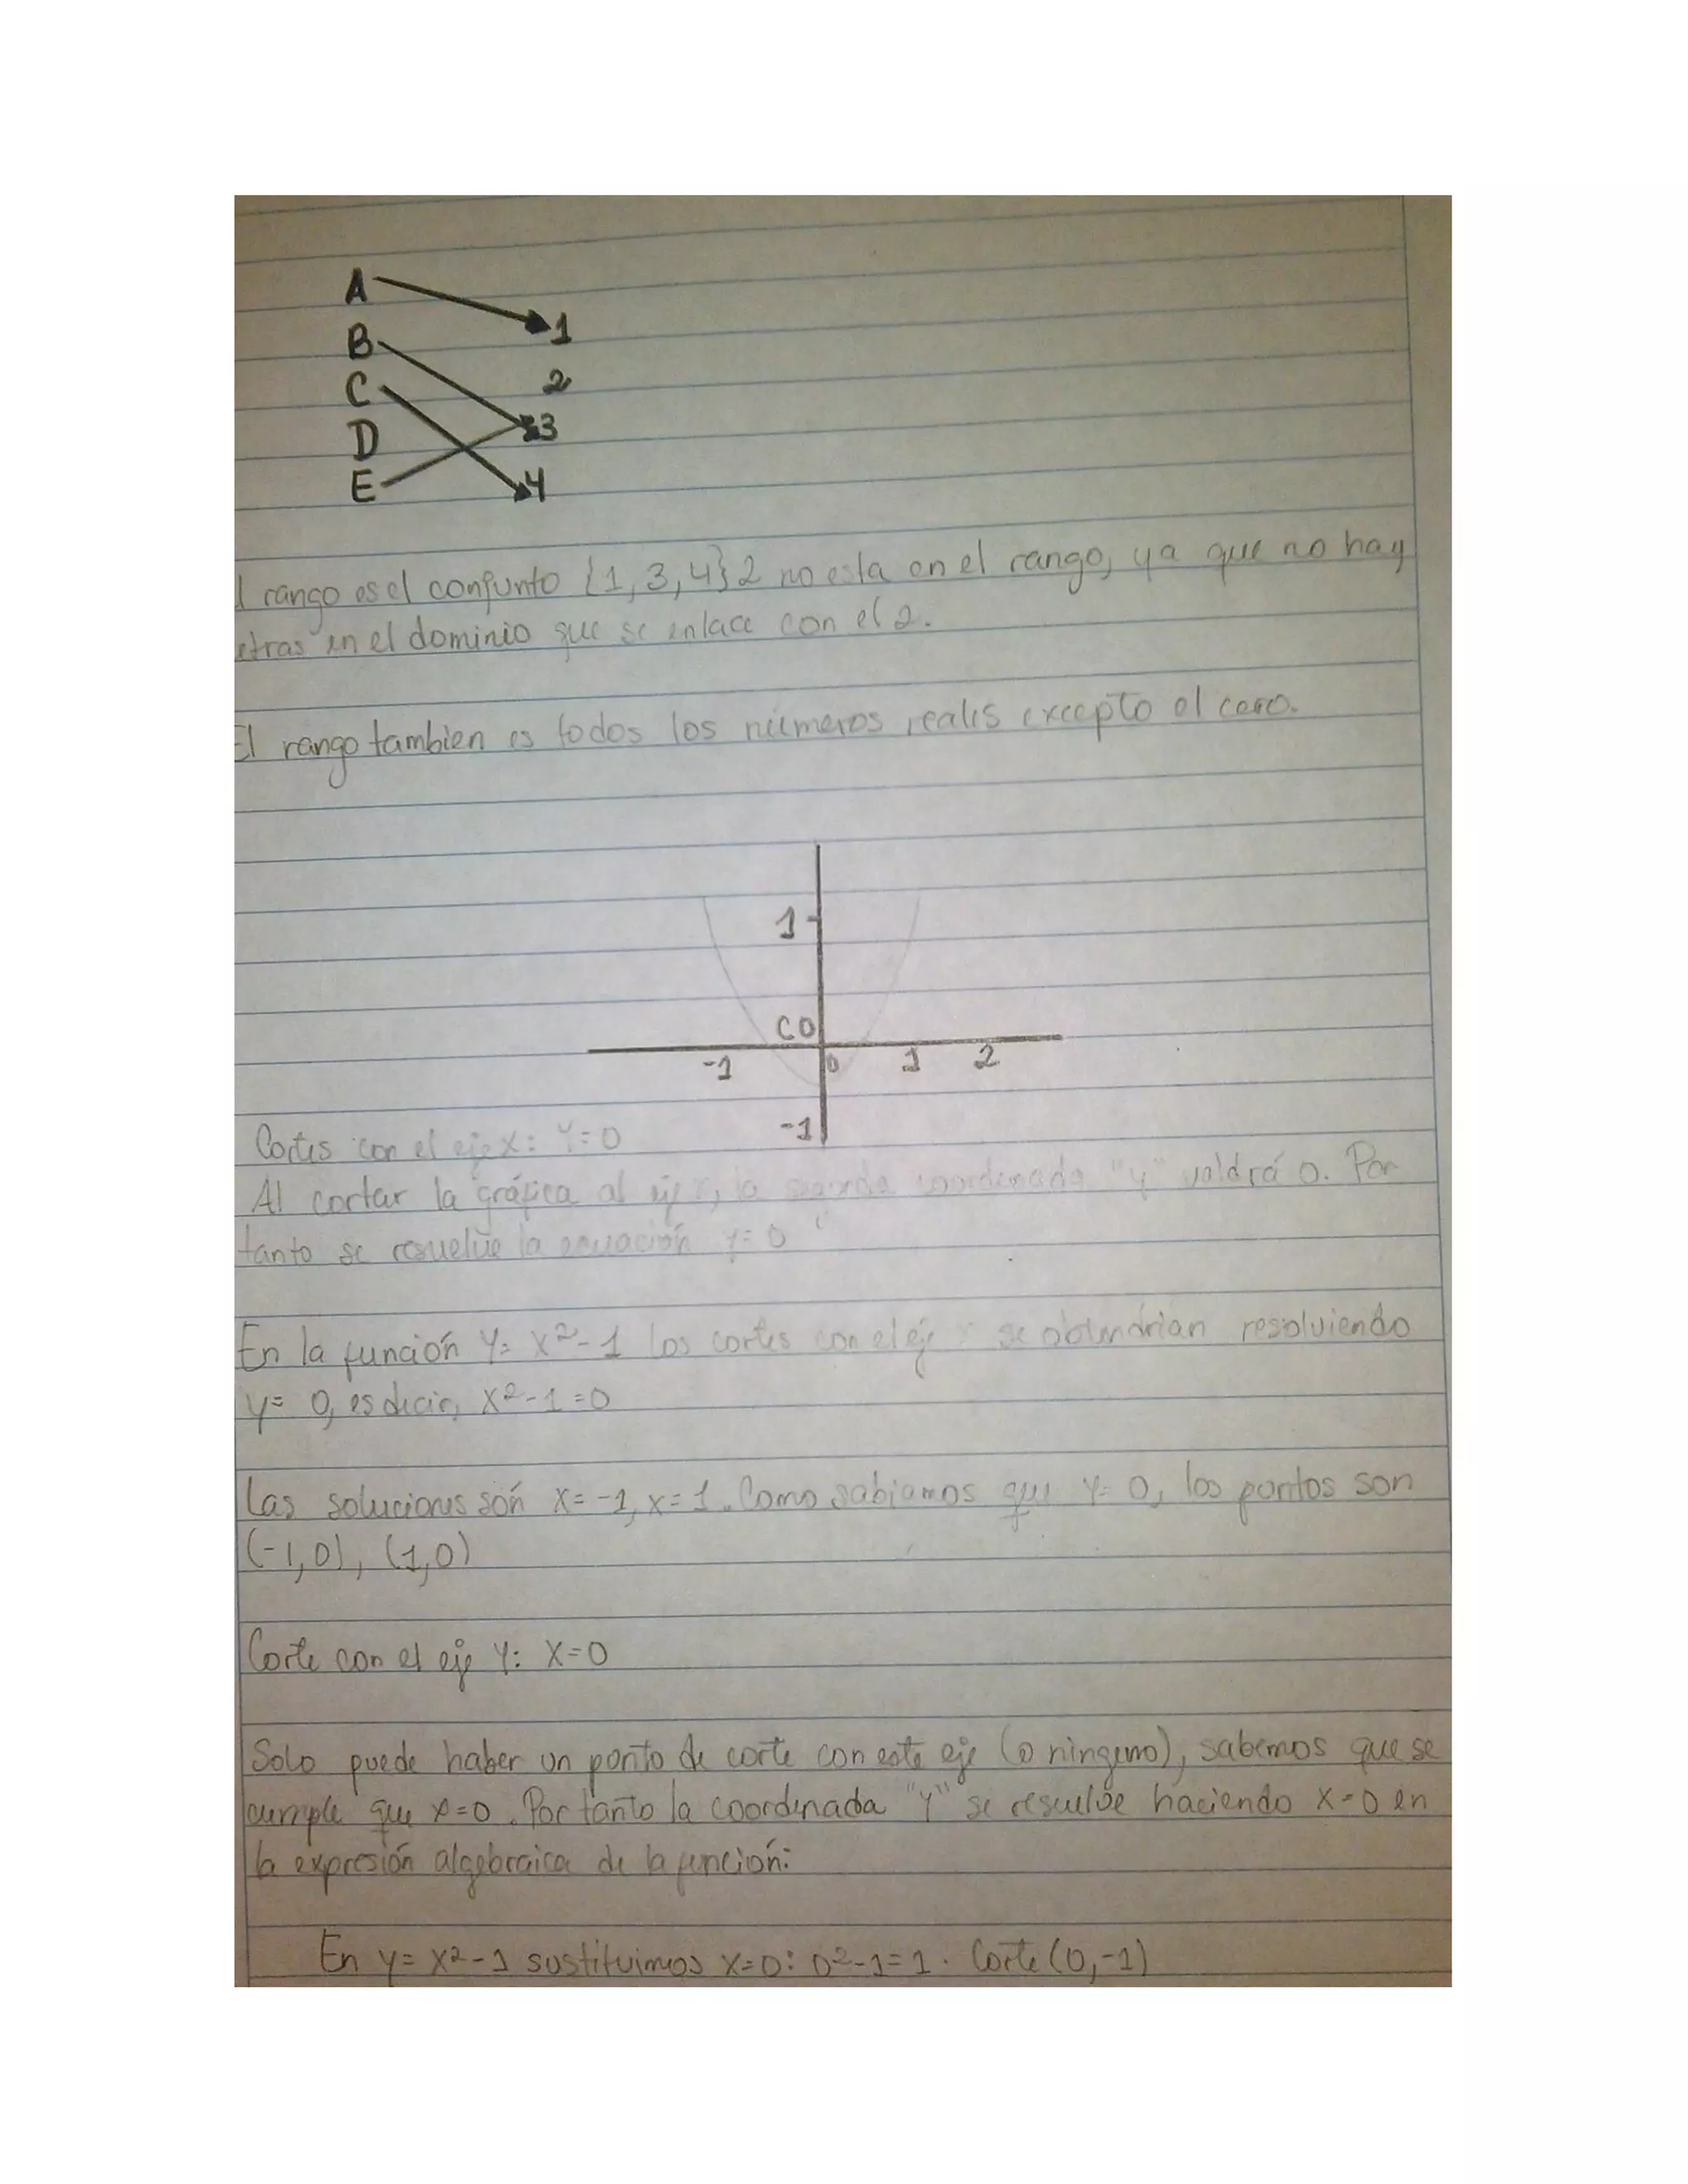 A
1
B
2
C
3
D
4
E
l rango es el conjunto {1, 3, 4} 2 no esta en el rango, ya que no hay
etras en el dominio que se enlace con el 2.
El rango tambien es todos los números reales excepto el cero.
1
CO
-1 0 1 2
-1
Cortes con el eje X: Y=0
Al cortar la gráfica al eje x, la segunda coordenada "y" valdrá 0. Por
tanto se resuelve la ecuación y=0
En la función Y= X²-1 los cortes con el eje x se obtendrian resolviendo
y= 0, es decir, X²-1=0
Las soluciones són X= -1, x= 1. Como sabiamos que Y= 0, los pontos son
(-1,0), (1,0)
Corte con el eje Y: X=0
Solo puede haber un ponto de corte con este eje (o ninguno), sabemos que se
cumple que x=0. Por tanto la coordenada "Y" se resuelve haciendo X=0 en
la expresión algebraica de la función:
En y= X²-1 sustituimos X=0: 0²-1=1. Corte (0,-1)